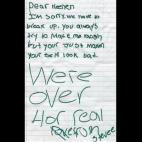 Dear Heather
I'm sorry we have to
break up. you always
try to Make me laugh
but your Just making
your self look bad.
We're
over
4or real
From